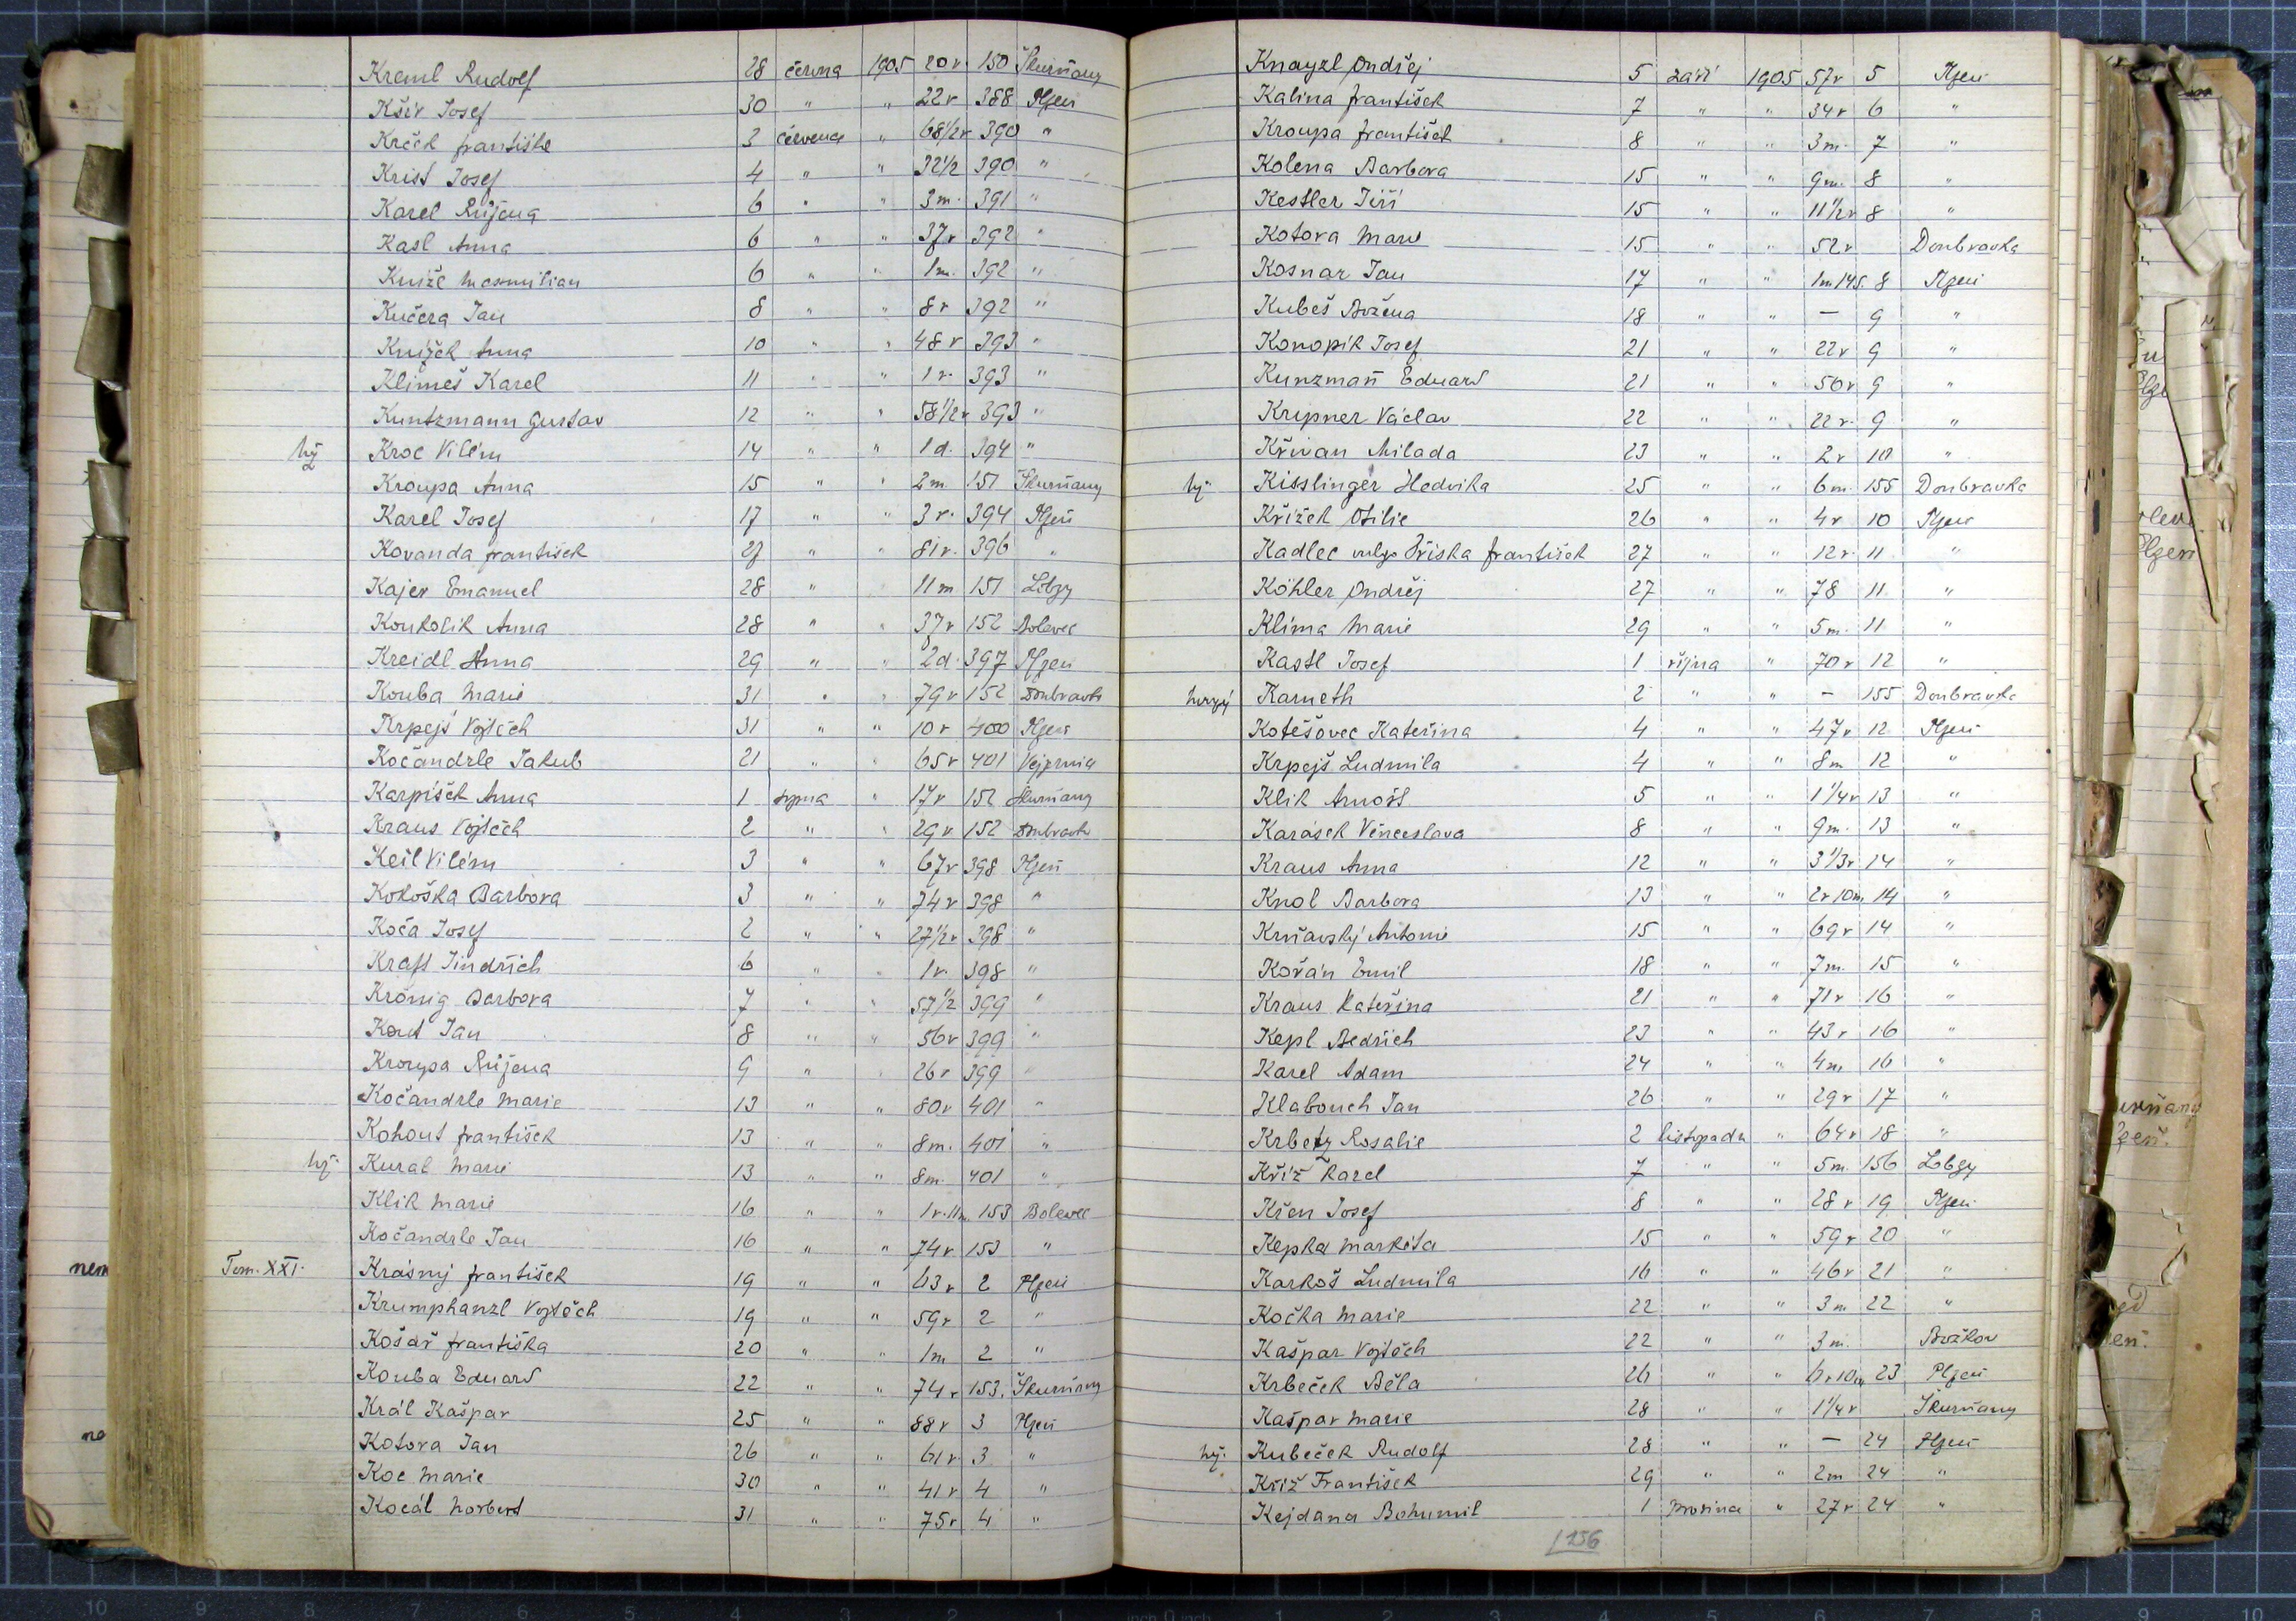 Kreml Rudolf 28 června 1905 20r 150 Skurňany
Kšír Josef 30 " " 22r 388 Plzeň
Krček Františka 3 července " 68 1/2r 390 "
Krist Josef 4 " " 32 1/2 390 "
Karel Růžena 6 " " 3m. 391 "
Kasl Anna 6 " " 37r 392 "
Kníže Maxmilian 6 " " 1m. 392 "
Kučera Jan 8 " " 8r 392 "
Knížek Anna 10 " " 48r 393 "
Klimeš Karel 11 " " 1r. 393 "
Kuntzmann Gustav 12 " " 58 1/2r 393 "
hý Kroc Vilém 14 " " 1d. 394 "
Kroupa Anna 15 " " 2m. 151 Skurňany
Karel Josef 17 " " 3r. 394 Plzeň
Kovanda František 27 " " 81r. 396 "
Kajer Emanuel 28 " " 11m 151 Lobzy
Koukolík Anna 28 " " 37r 152 Bolevec
Kreidl Anna 29 " " 2d. 397 Plzeň
Kouba Marie 31 " " 79r 152 Doubravka
Krpejš Vojtěch 31 " " 10r 400 Plzeň
Kočandrle Jakub 21 " " 65r 401
Karpíšek Anna 1 srpna " 17r 152 Skurňany
Kraus Vojtěch 2 " " 29r 152 Doubravka
Keil Vilém 3 " " 67r 398 Plzeň
Kokoška Barbora 3 " " 74r 398 "
Koča Josef 2 " " 27 1/2r 398 "
Kraft Jindřich 6 " " 1r. 398 "
Krönig Barbora 7 " " 57 1/2 399 "
Kout Jan 8 " " 56r 399 "
Kroupa Růžena 9 " " 26r 399 "
Kočandrle Marie 13 " " 80r 401 "
Kohout František 13 " " 8m. 401 "
hý. Kural Marie 13 " " 8m. 401 "
Klik Marie 16 " " 1r. 11m. 153 Bolevec
Kočandrle Jan 16 " " 74r 153 "
Tom. XXI. Krásný František 19 " " 63r 2 Plzeň
Krumphanzl Vojtěch 19 " " 59r 2 "
Košař Františka 20 " " 1m 2 "
Kouba Eduard 22 " " 74r 153. Skurňany
Král Kašpar 25 " " 88r 3 Plzeň
Kotora Jan 26 " " 61r 3 "
Koc Marie 30 " " 41r 4 "
Kocál Norbert 31 " " 75r 4 "
Knayzl Ondřej 5 září 1905 57r 5 Plzeň
Kalina František 7 " " 34r 6 "
Kroupa František 8 " " 3m. 7 "
Kolena Barbora 15 " " 9m. 8 "
Kestler Jiří 15 " " 11 1/2r 8 "
Kotora Marie 15 " " 52r Doubravka
Kosnar Jan 17 " " 1m 14d. 8 Plzeň
Kubeš Božena 18 " " — 9 "
Konopík Josef 21 " " 22r 9 "
Kunzmañ Eduard 21 " " 50r 9 "
Kripner Václav 22 " " 22r. 9 "
Křivan Milada 23 " " 2r 10 "
hý. Kisslinger Hedvika 25 " " 6m. 155 Doubravka
Křížek Otilie 26 " " 4r 10 Plzeň
Kadlec vulgo Oříška František 27 " " 12r. 11 "
Köhler Ondřej 27 " " 78 11 "
Klíma Marie 29 " " 5m. 11 "
Kastl Josef 1 října " 70r 12 "
Karneth 2 " " — 155 Doubravka
Kotěšovec Kateřina 4 " " 47r 12 Plzeň
Krpejš Ludmila 4 " " 8m 12 "
Klik Arnošt 5 " " 1 1/4r 13 "
Karásek Věnceslava 8 " " 9m. 13 "
Kraus Anna 12 " " 3 1/3r 14 "
Knol Barbora 13 " " 2r 10m. 14 "
Krňavský Antonie 15 " " 69r 14 "
Kořán Emil 18 " " 7m. 15 "
Kraus Kateřina 21 " " 71r 16 "
Kepl Bedřich 23 " " 43r 16 "
Karel Adam 24 " " 4m. 16 "
Klabouch Jan 26 " " 29r 17 "
Krbetz Rosalie 2 listopadu " 64r 18 "
Kříž Karel 7 " " 5m. 156 Lobzy
Křen Josef 8 " " 28r 19 Plzeň
Kepka Markéta 15 " " 59r 20 "
Karkoš Ludmila 16 " " 46r 21 "
Kočka Marie 22 " " 3m 22 "
Kašpar Vojtěch 22 " " 3m. Božkov
Krbeček Běla 26 " " 6r 10m 23 Plzeň
Kašpar Marie 28 " " 1 1/4r Skurňany
hý. Kubeček Rudolf 28 " " — 24 Plzeň
Kříž František 29 " " 2m 24 "
Kejdana Bohumil 1 prosince " 27r 24 "
156